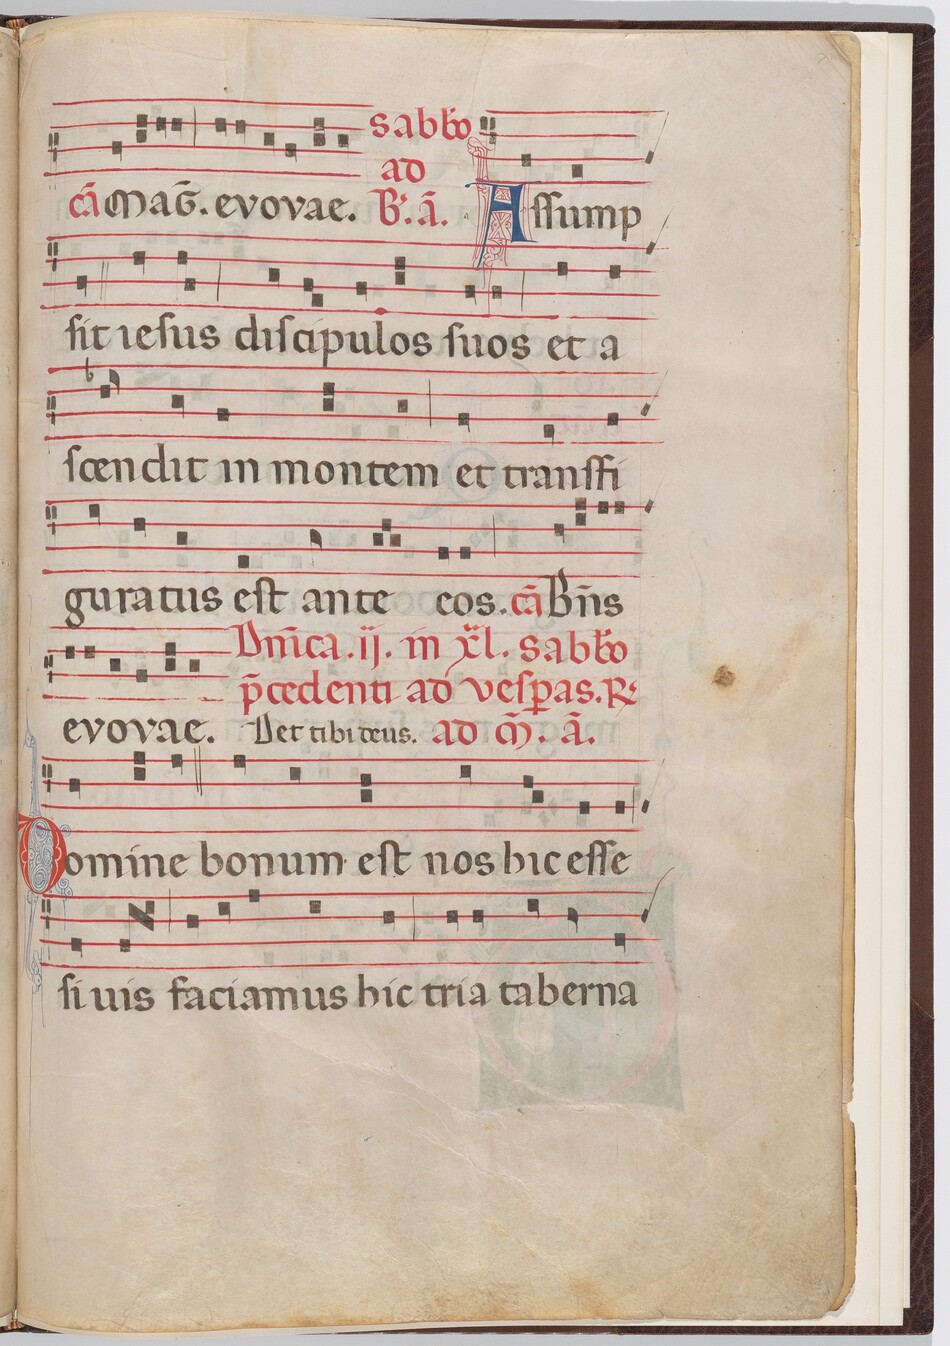 sabb̄o
ad
cā Mag̃. evovae. B᷒. ā. Assump
sit iesus discipulos suos et a
scendit in montem et transfi
guratus est ante eos. cā Bñs
Dñica .ij. in xl̃. sabb̄o
p̄cedenti ad vesꝑas. R̃
evovae. Det tibi deus. ad m̄. ā.
Domine bonum est nos hic esse
si uis faciamus hic tria taberna